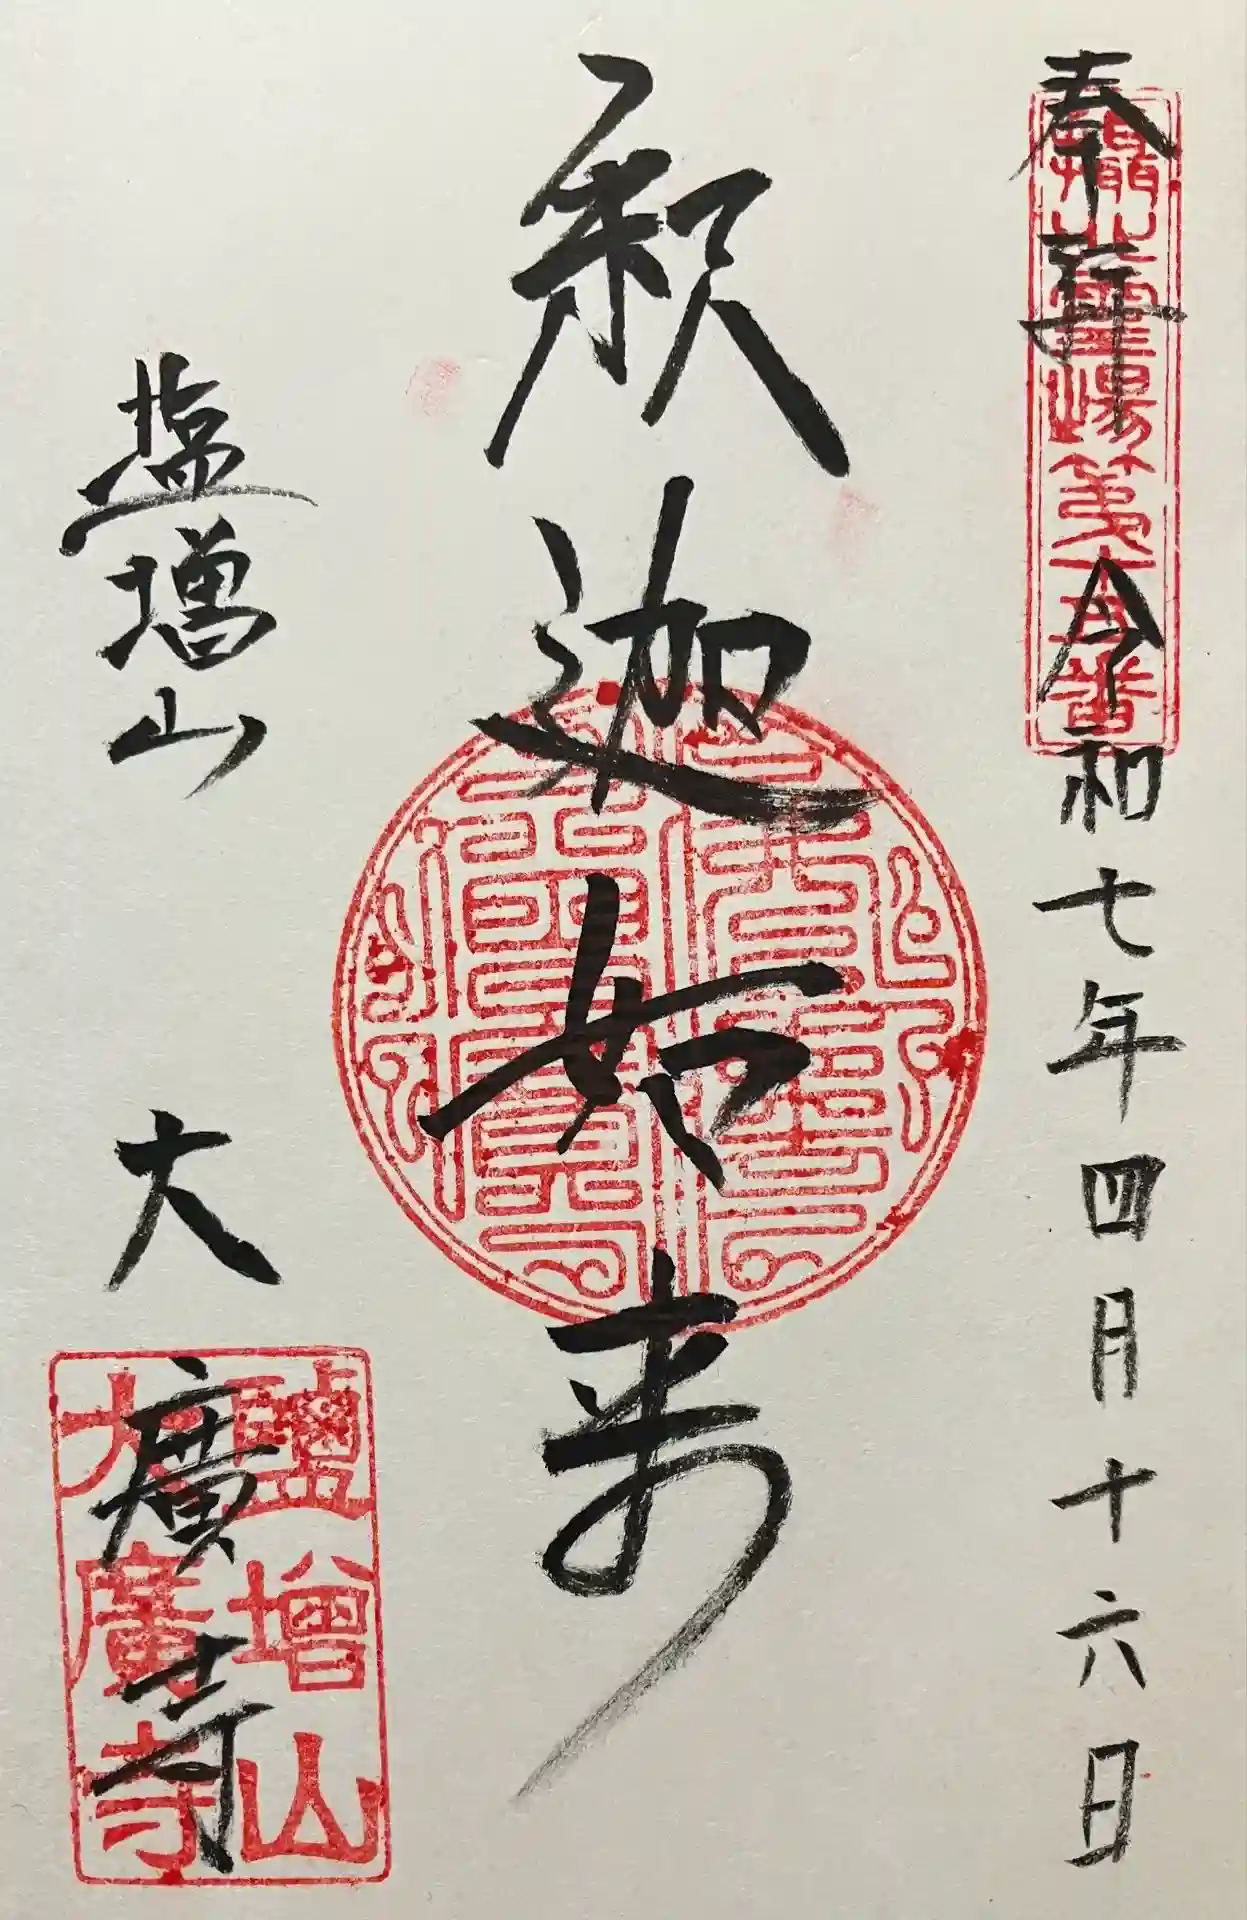 奉拝 令和七年四月十六日
攝北霊場第五番
釈迦如来
塩増山
大廣寺
鹽増山
大廣寺